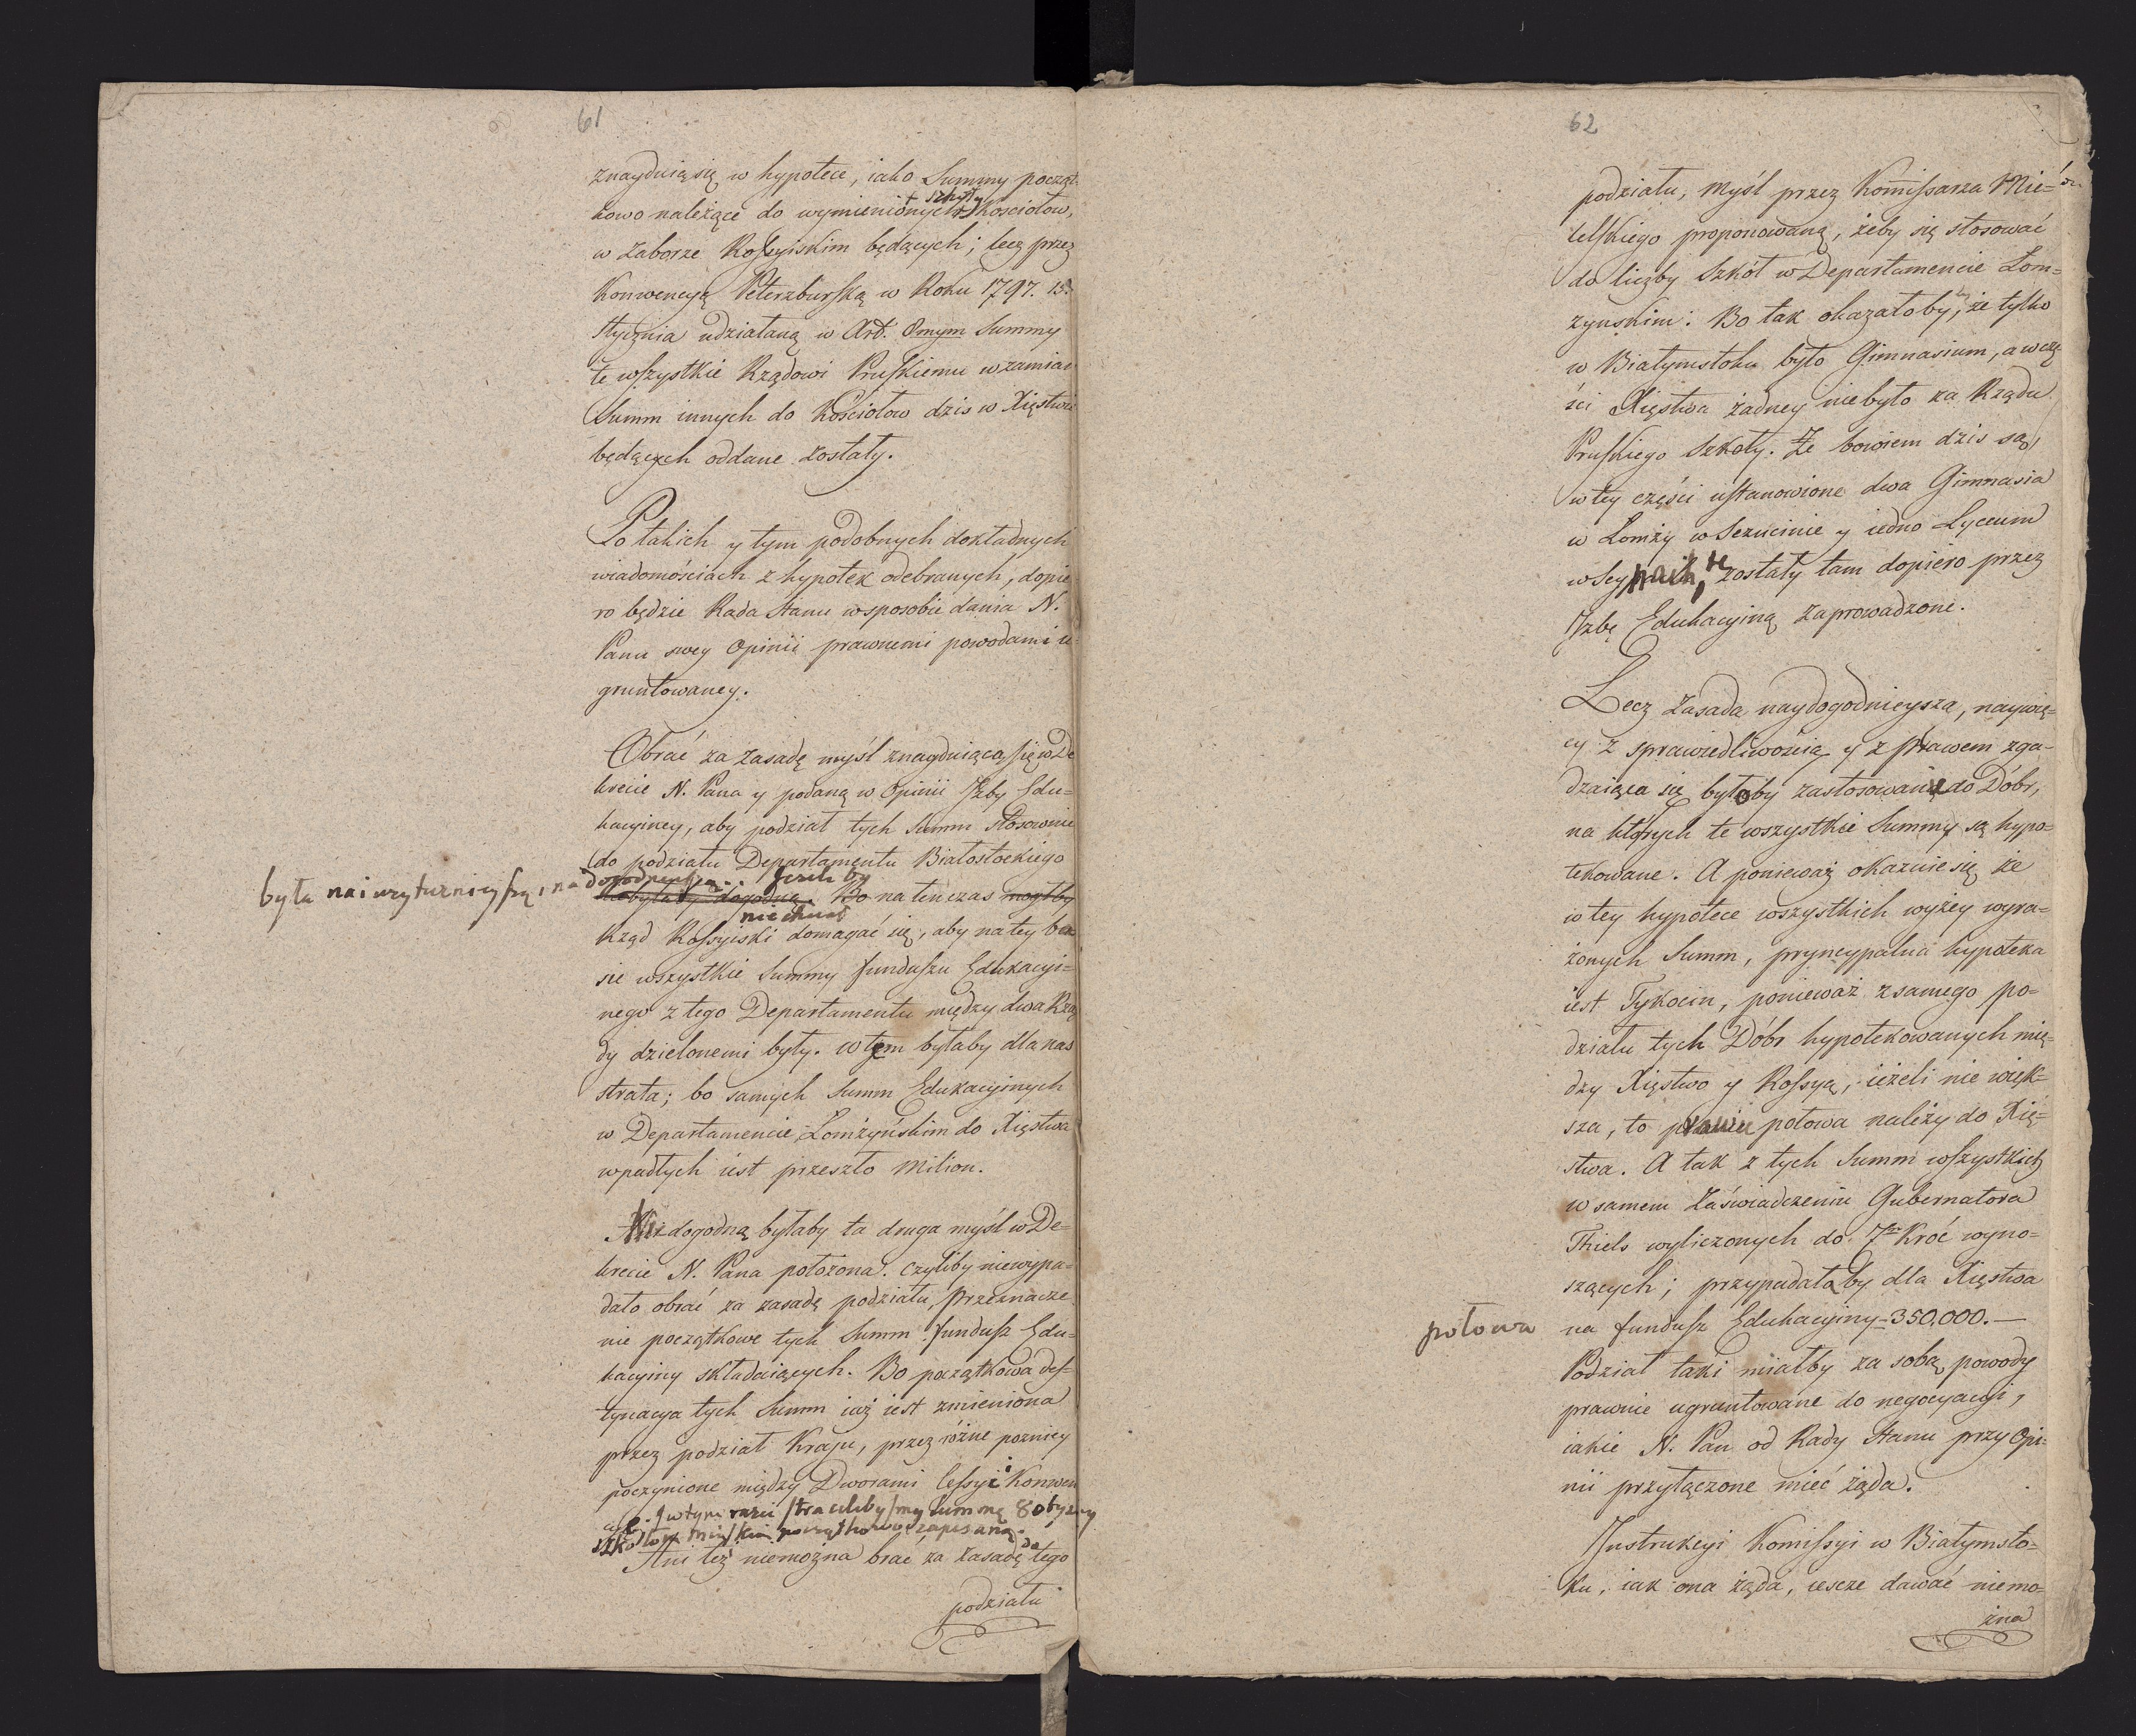 61
znayduią się w hypotece, iako Summy począt-
kowo należące do wymienionych + szkoły Kosciołow,
w Zaborze Rossyiskim będących; lecz przez
Konwencyą Peterzburską w Roku 1797. 15.
stycznia udziałaną w Art. 8mym Summy
te wszystkie Rządowi Pruskiemu w zamian
Summ innych do Kościołow dzis w Xięstwie
będących oddane zostały.
Po takich y tym podobnych dokładnych
wiadomościach z hypotek odebranych, dopie-
ro będzie Rada Stanu w sposobie dania N.
Panu swey Opinii prawnemi powodami u-
gruntowaney.
Obrać za zasadę myśl znayduiącą się w De
krecie N. Pana y podaną w Opinii Izby Edu-
kacyiney, aby podział tych Summ stosownie
do podziału Departamentu Białostockiego
była
niebyłaby dogodną. Bo na ten czas mogłby
niechciał
Rząd Rossyiski domagać się, aby na tey ba
sie wszystkie Summy funduszu Edukacyi-
nego z tego Departamentu między dwa Rzą
dy dzielonemi były. w tem byłaby dla nas
strata; bo samych Summ Edukacyinych
w Departamencie Łomżyńskim do Xięstwa
wpadłych iest przeszło Milion.
dogodną byłaby ta druga myśl w De-
krecie N. Pana położona. czyliby niewypa-
dało obrać za zasadę podziału, Przeznacze
nie początkowe tych Summ fundusz Edu-
kacyiny składaiących. Bo początkowa des-
tynacya tych Summ iuż iest zmieniona
przez podział Kraju, przez różne pozniey
poczynione między Dworami Cessye i Konwen
cye. w tym razie stracilibysmy summę 80 tysięcy
początkowo zapisaną.
Ani też niemożna brać za zasadę do tego
podziału
62
podziału, Myśl przez Komissarza Mie-
lelskiego proponowaną, żeby się stosować
do liczby Szkół w Departamencie Łom-
zynskim: Bo tak okazałoby się, że tylko
w Białymstoku było Gimnasium, a w czę-
ści Xięstwa żadney niebyło za Rządu
Pruskiego Szkoły. Że bowiem dzis są
w tey części ustanowione dwa Gimnasia
w Łomży w Sczucinie y iedno Lyceum
w Seynach, te zostały tam dopiero przez
Izbę Edukacyiną zaprowadzone.
Lecz Zasada naydogodnieysza, naywię-
cy z sprawiedliwością y z prawem zga-
dzaiąca się byłoby zastosowanie do Dóbr,
na których te wszystkie Summy są hypo-
tekowane. A ponieważ okazuie się że
w tey hypotece wszystkich wyżey wyra-
żonych Summ, pryncypalna hypoteka
iest Tykocin, ponieważ z samego po-
działu tych Dóbr hypotekowanych mię-
dzy Xięstwo y Rossyą, ieżeli nie więk-
sza, to prawie połowa należy do Xię-
stwa. A tak z tych Summ wszystkich
w samem Zaświadczeniu Gubernatora
Thiels wyliczonych do 7m Kroć wyno-
szących; przypadałaby dla Xięstwa
połowa
na fundusz Edukacyiny - 350,000. —
Podział taki miałby za sobą powody
prawnie ugruntowane do negocyacyi,
iakie N. Pan od Rady Stanu przy Opi-
nii przyłączone mieć żąda.
Instrukcyi Komissyi w Białymsto-
ku, iak ona żąda, iescze dawać niemo-
żna